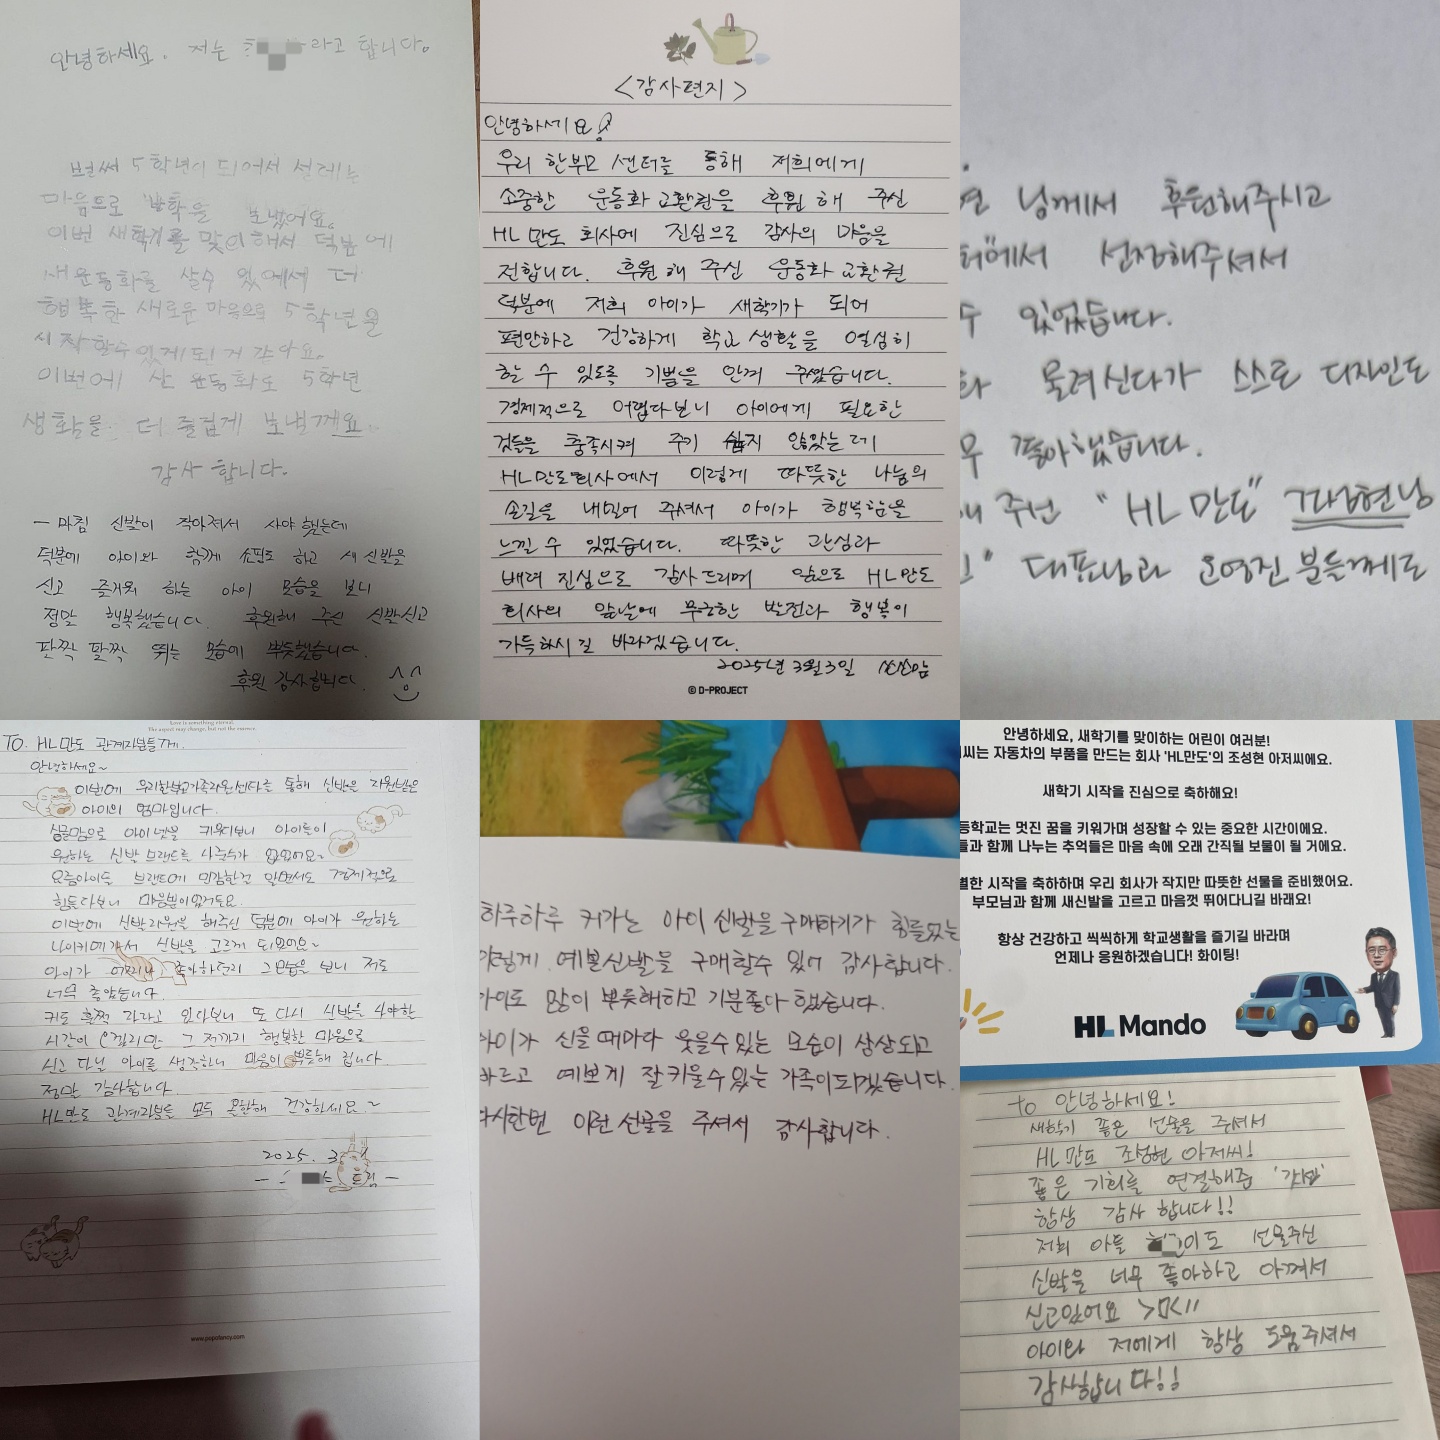 안녕하세요. 저는 라고 합니다.
벌써 5학년이 되어서 설레는
마음으로 방학을 보냈어요.
이번 새학기를 맞이해서 덕분에
새운동화를 살수 있에서 더
행복한 새로운 마음으로 5학년을
시작할수있게되거 같아요.
이번에 산 운동화로 5학년
생활을 더 즐겁게 보낼께요.
감사 합니다.
- 마침 신발이 작아져서 사야 했는데
덕분에 아이와 함께 쇼핑도 하고 새신발을
신고 즐거워 하는 아이 모습을 보니
정말 행복했습니다. 후원해 주신 신발신고
팔짝 팔짝 뛰는 모습에 뿌듯했습니다.
후원 감사합니다.
<감사편지>
안녕하세요!
우리 한부모 센터를 통해 저희에게
소중한 운동화 교환권을 후원 해 주신
HL 만도 회사에 진심으로 감사의 마음을
전합니다. 후원 해 주신 운동화 교환권
덕분에 저희 아이가 새학기가 되어
편안하고 건강하게 학교 생활을 열심히
할 수 있도록 기쁨을 안겨 주셨습니다.
경제적으로 어렵다보니 아이에게 필요한
것들을 충족시켜 주기 쉽지 않았는데
HL만도회사에서 이렇게 따뜻한 나눔의
손길을 내밀어 주셔서 아이가 행복함을
느낄 수 있었습니다. 따뜻한 관심과
배려 진심으로 감사드리며 앞으로 HL만도
회사의 앞날에 무궁한 발전과 행복이
가득하시길 바라겠습니다.
2025년 3월3일
© D-PROJECT
님께서 후원해주시고
터"에서 선정해주셔서
수 있었습니다.
물려신다가 스스로 디자인도
무 좋아했습니다.
해 주신 "HL 만도"
대표님과 운영진분들께도
Love is something eternal.
The aspect may change, but not the essence.
TO. HL만도 관계자분들께.
안녕하세요~
이번에 우리한부모가족지원센터를 통해 신발을 지원받은
아이의 엄마입니다.
싱글맘으로 아이 넷을 키우다보니 아이들이
원하는 신발 브랜드를 사줄수가 없었어요~
요즘아이들 브랜드에 민감한건 알면서도 경제적으로
힘들다보니 마음뿐이었거든요.
이번에 신발지원을 해주신 덕분에 아이가 원하는
나이키에가서 신발을 고르게 되었어요~
아이가 어찌나 좋아하던지 그모습을 보니 저도
너무 좋았습니다.
키도 훌쩍 자라고 있다보니 또 다시 신발을 사야할
시간이 오겠지만 그 저까지 행복한 마음으로
신고 다닐 아이를 생각하니 마음이 뿌듯해 집니다.
정말 감사합니다.
HL만도 관계자분들 모두 온한해 건강하세요~
2025. 3.
드림 -
www.popofancy.com
하루하루 커가는 아이 신발을 구매하기가 힘들었는
이렇게 예쁜신발을 구매할수 있어 감사합니다.
아이도 많이 뿌듯해하고 기분좋다 했습니다.
아이가 신을 때마다 웃을수있는 모습이 상상되고
바르고 예쁘게 잘키울수있는 가족이되겠습니다.
다시한번 이런 선물을 주셔서 감사합니다.
안녕하세요, 새학기를 맞이하는 어린이 여러분!
씨는 자동차의 부품을 만드는 회사 'HL만도'의 조성현 아저씨에요.
새학기 시작을 진심으로 축하해요!
등학교는 멋진 꿈을 키워가며 성장할 수 있는 중요한 시간이에요.
들과 함께 나누는 추억들은 마음 속에 오래 간직될 보물이 될 거에요.
별한 시작을 축하하며 우리 회사가 작지만 따뜻한 선물을 준비했어요.
부모님과 함께 새신발을 고르고 마음껏 뛰어다니길 바래요!
항상 건강하고 씩씩하게 학교생활을 즐기길 바라며
언제나 응원하겠습니다! 화이팅!
HL Mando
to 안녕하세요!
새학기 좋은 선물을 주셔서
HL만도 조성현 아저씨!
좋은 기회를 연결해준
항상 감사 합니다!!
저희 아들 이도 선물주신
신발을 너무 좋아하고 아껴서
신고있어요 >ㅁ<!!
아이와 저에게 항상 도움주셔서
감사합니다!!